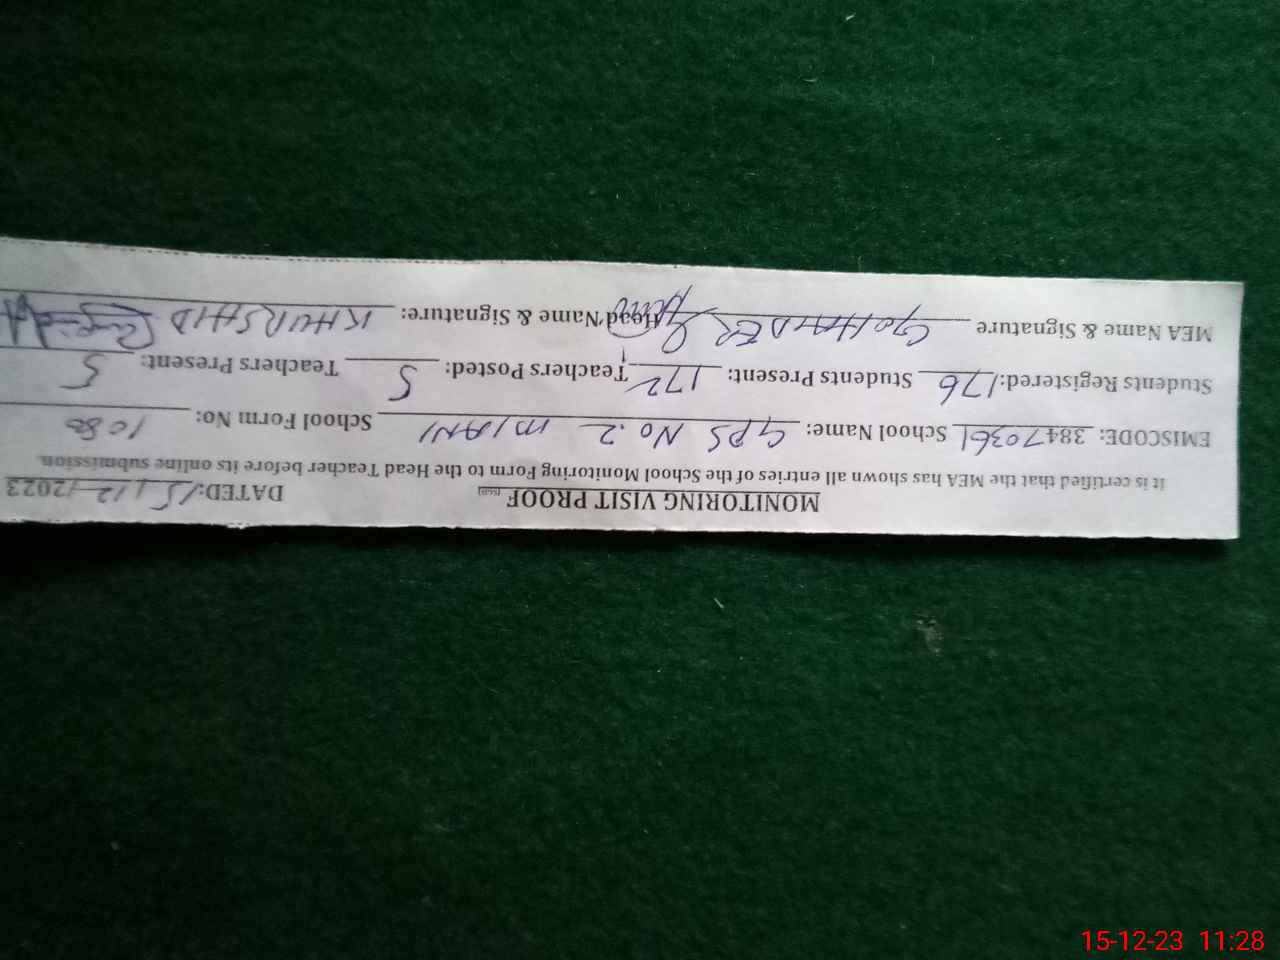 MONITORING VISIT PROOF DATED: 15/12/2023
It is certified that the MEA has shown all entries of the School Monitoring Form to the Head Teacher before its online submission.
EMISCODE: 38470361 School Name: GPS No.2 MIANI School Form No: 1080
Students Registered: 176 Students Present: 172 Teachers Posted: 5 Teachers Present: 5
MEA Name & Signature Head Name & Signature: KHURSHID
15-12-23 11:28